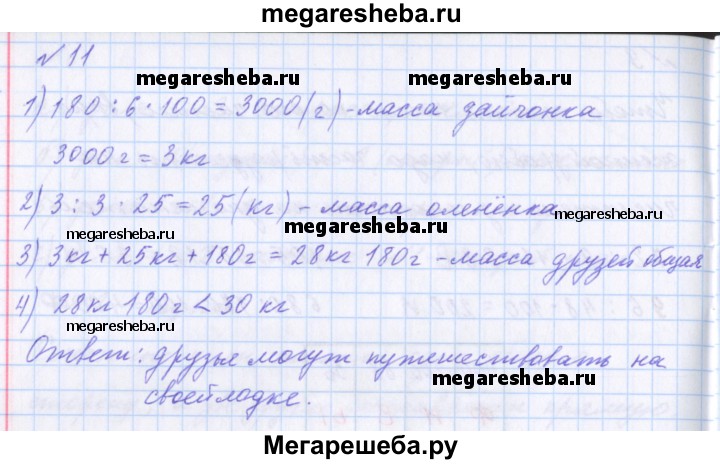 megaresheba.ru
№ 11
megaresheba.ru megaresheba.ru
1) 180 : 6 · 100 = 3000 (г) - масса зайчонка
3000 г = 3 кг
2) 3 : 3 · 25 = 25 (кг) - масса оленёнка
megaresheba.ru
megaresheba.ru
3) 3 кг + 25 кг + 180 г = 28 кг 180 г - масса друзей общая
4) 28 кг 180 г < 30 кг
megaresheba.ru
Ответ: друзья могут путешествовать на
megaresheba.ru
своей лодке.
Мегарешеба.ру